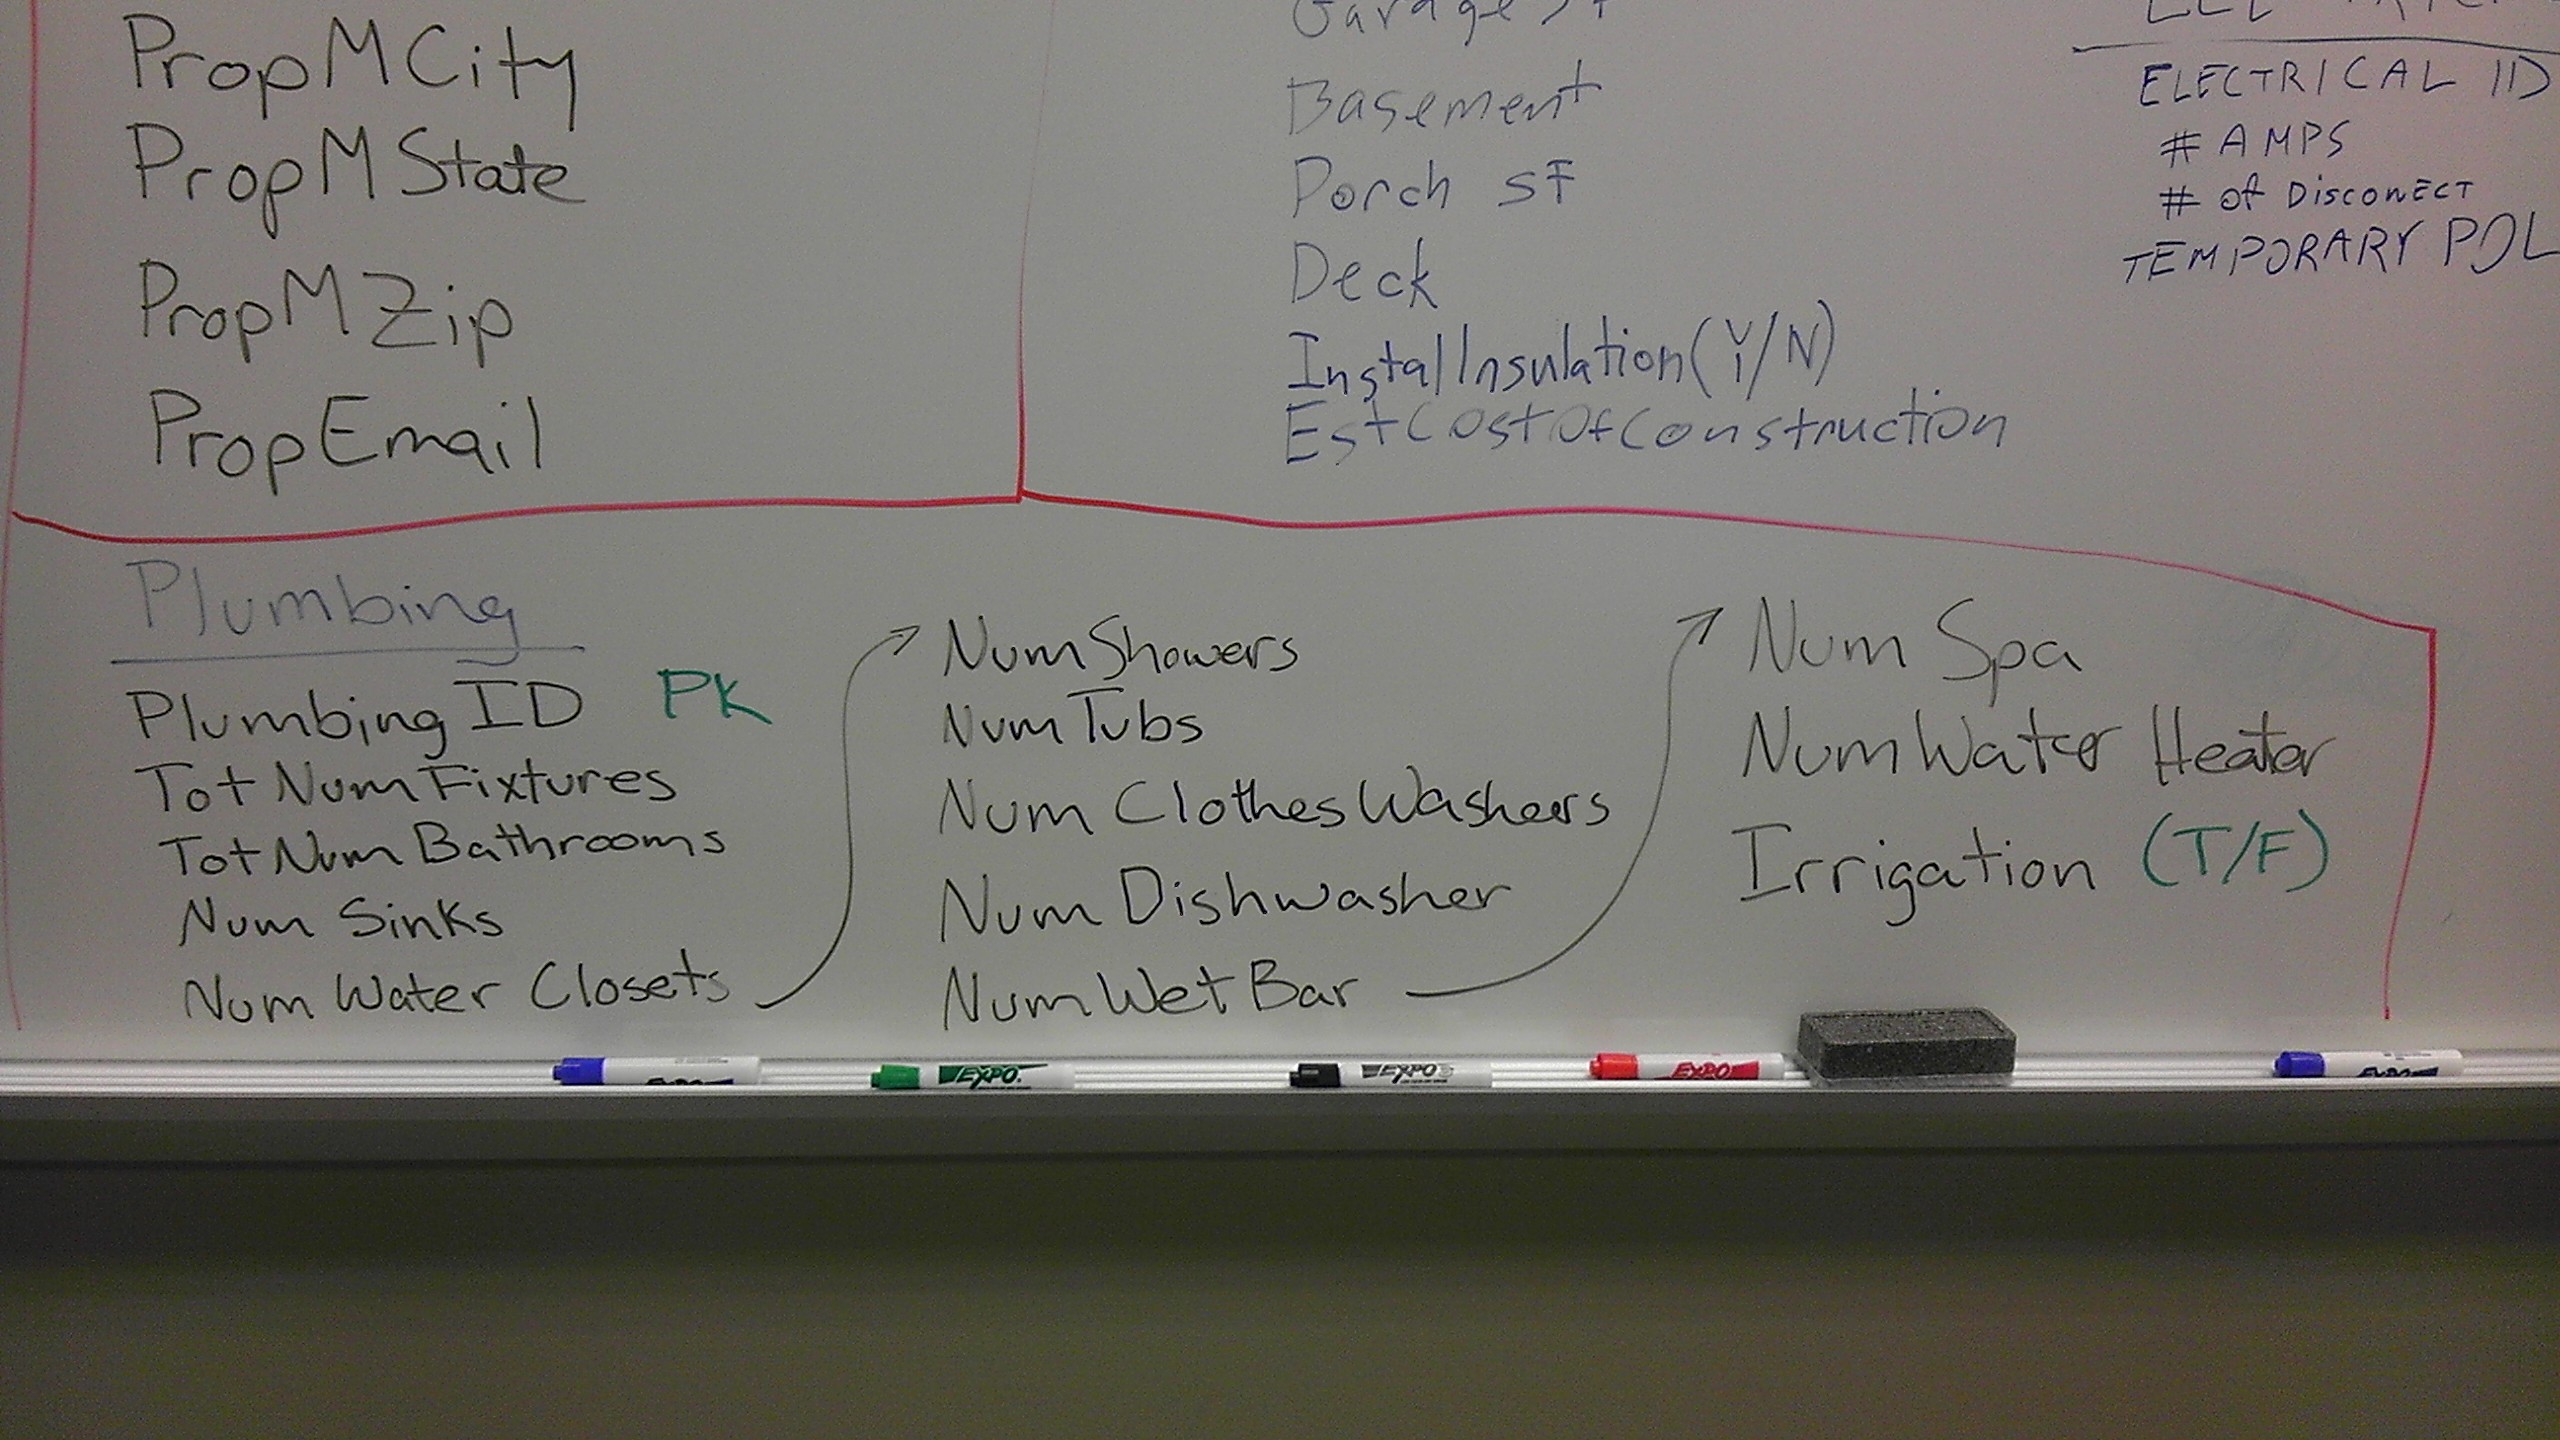 PropMCity
PropMState
PropMZip
PropEmail
Garage SF
Basement
Porch SF
Deck
InstallInsulation(Y/N)
EstCostOfConstruction
ELECTRICAL ID
# AMPS
# of DisconECT
TEMPORARY POL
Plumbing
Plumbing ID PK
Tot Num Fixtures
Tot Num Bathrooms
Num Sinks
Num Water Closets
Num Showers
Num Tubs
Num Clothes Washers
Num Dishwasher
Num Wet Bar
Num Spa
Num Water Heater
Irrigation (T/F)
EXPO
EXPO
EXPO
EXPO
EXPO